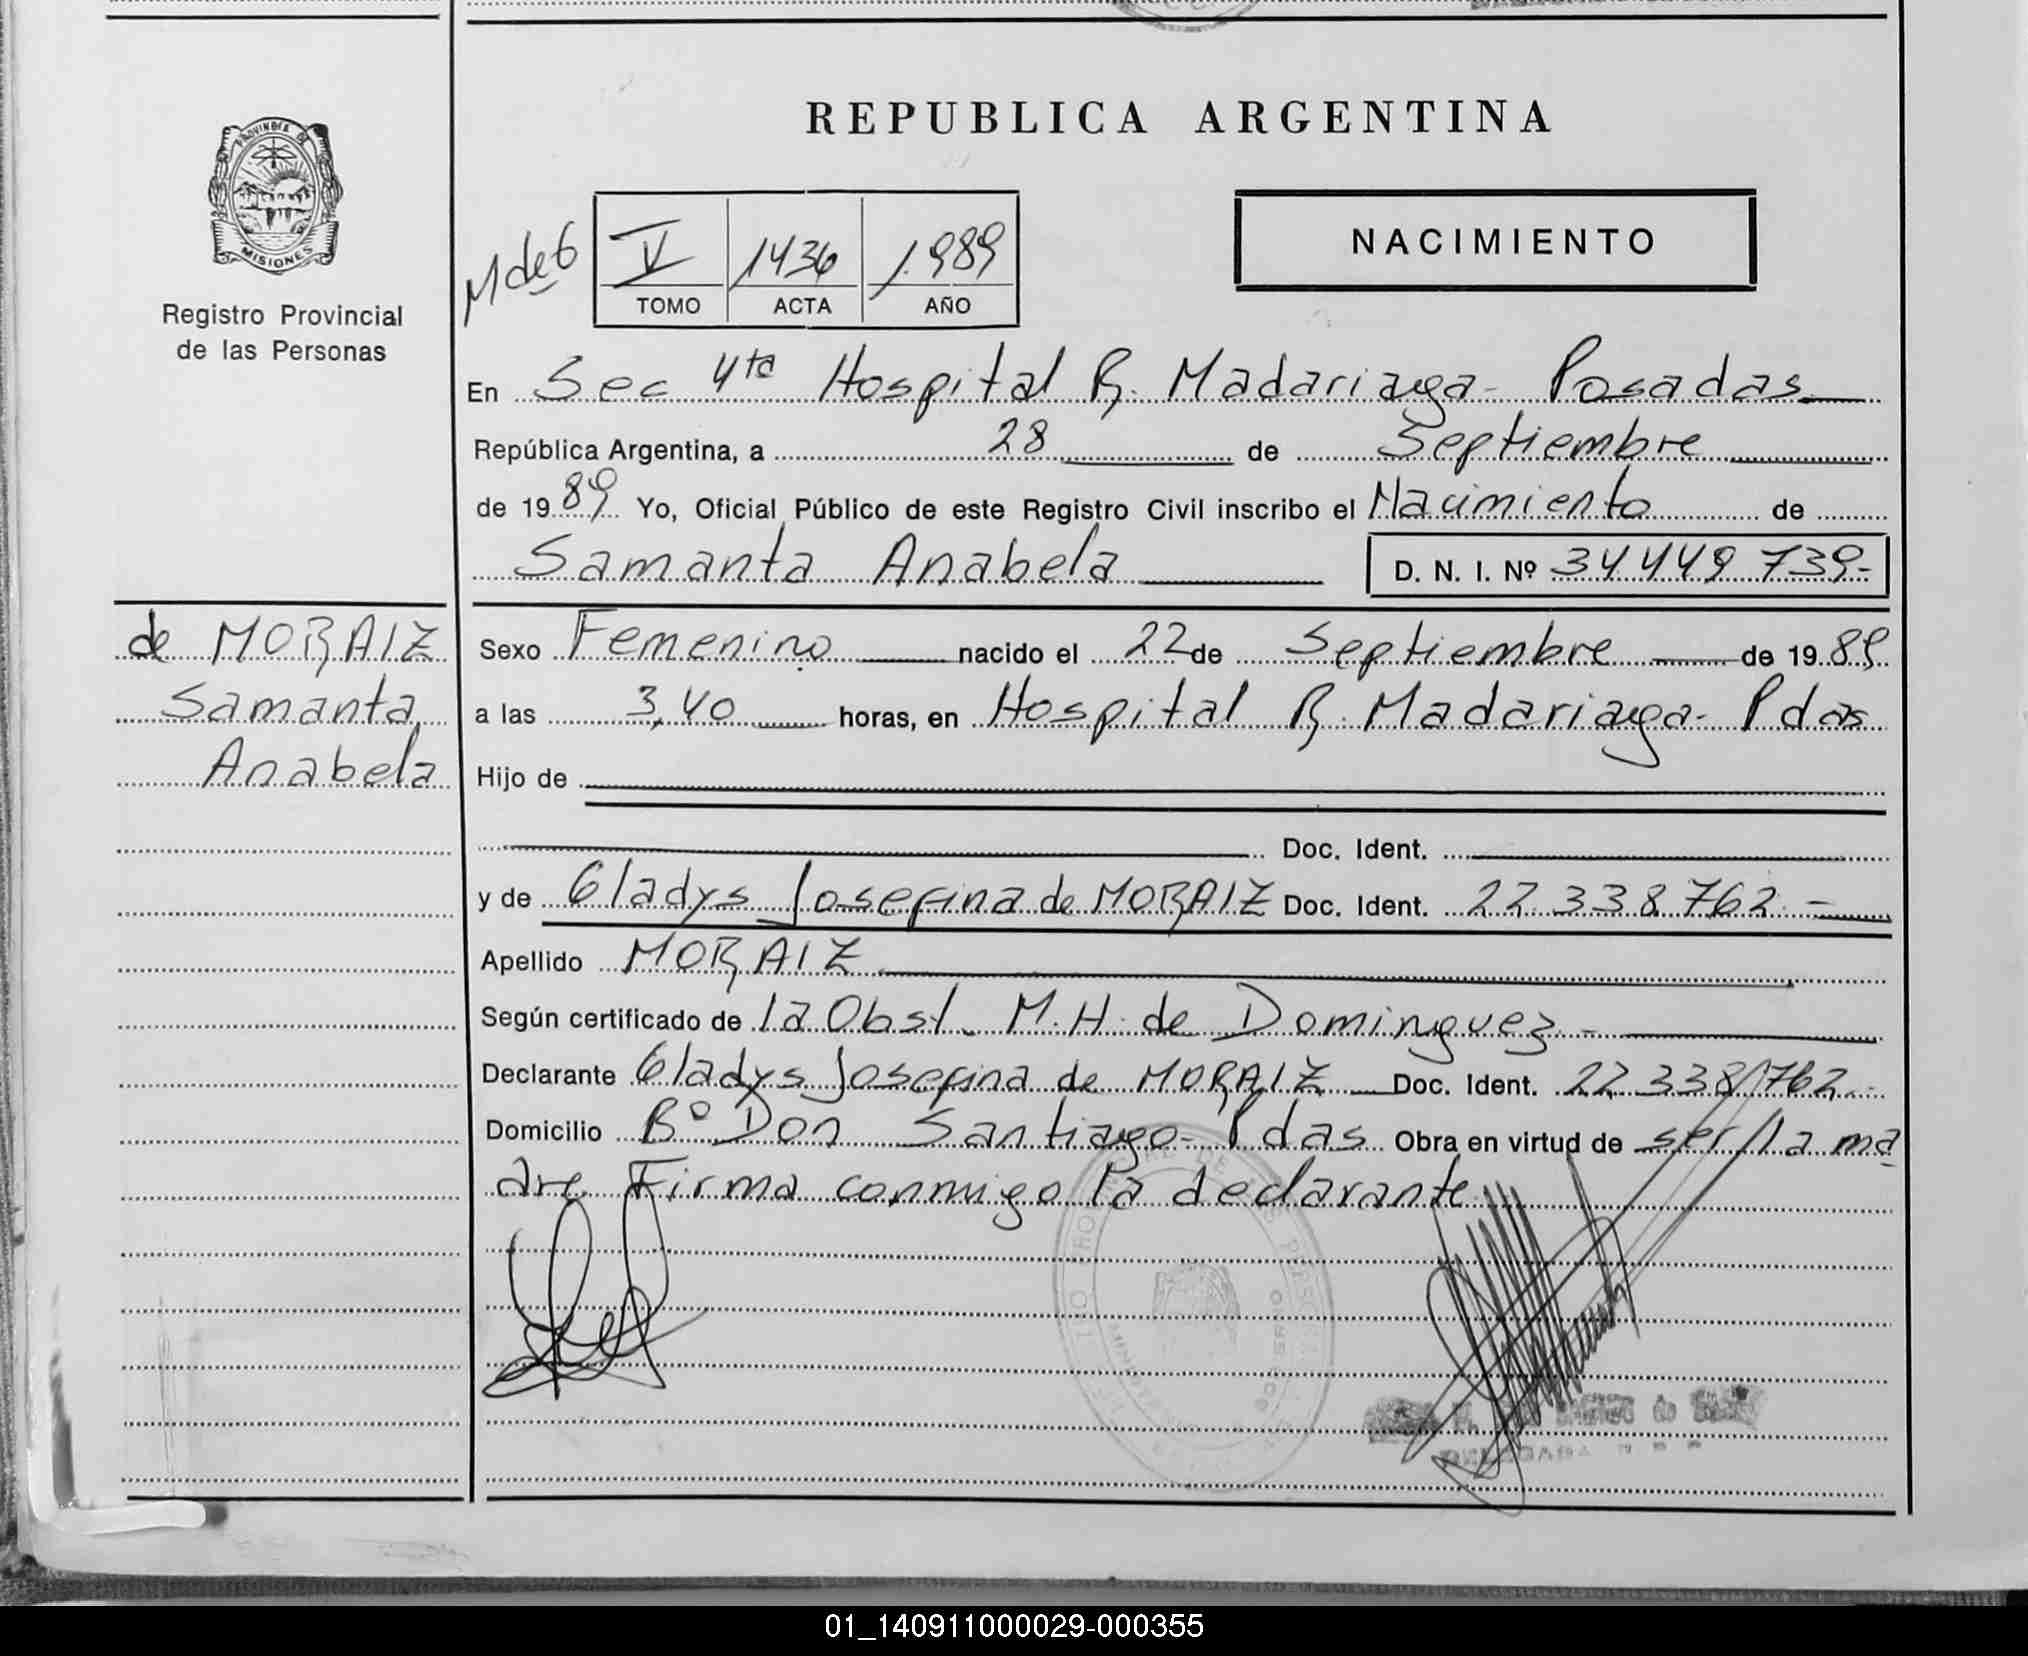 REPUBLICA ARGENTINA
PROVINCIA DE
MISIONES
Registro Provincial
de las Personas
M de G
V 1436 1989
TOMO ACTA AÑO
NACIMIENTO
En Sec 4ta Hospital R. Madariaga - Posadas
República Argentina, a 28 de Septiembre
de 1989 Yo, Oficial Público de este Registro Civil inscribo el Nacimiento de
Samanta Anabela D. N. I. Nº 34 449 739-
de MORAIZ
Samanta
Anabela
Sexo Femenino nacido el 22 de Septiembre de 1989
a las 3,40 horas, en Hospital R. Madariaga - Pdas
Hijo de
Doc. Ident.
y de Gladys Josefina de MORAIZ Doc. Ident. 22 338 762 -
Apellido MORAIZ
Según certificado de la Obst. M. H. de Dominguez -
Declarante Gladys Josefina de MORAIZ Doc. Ident. 22 338 762 -
Domicilio Bº Don Santiago - Pdas Obra en virtud de ser la ma
dre Firma conmigo la declarante
01_140911000029-000355